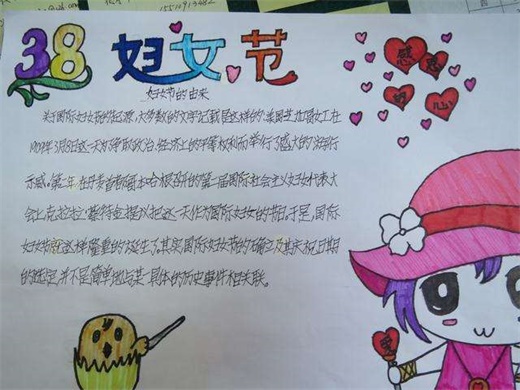 15510913482
38妇女节
感恩的心
妇女节的由来
关于国际妇女节的起源,大多数的文字记载是这样的:美国芝加哥女工在
1909年3月8日这一天为争取政治、经济上的平等权利而举行了盛大的游行
示威。第二年在丹麦首都哥本哈根召开的第一届国际社会主义妇女代表大
会上克拉拉·蔡特金提议把这一天作为国际妇女的节日,于是,国际
妇女节就这样隆重的诞生了,其实国际妇女节的确立及其庆祝日期
的选定,并不是简单地与某一具体的历史事件相关联。
爱